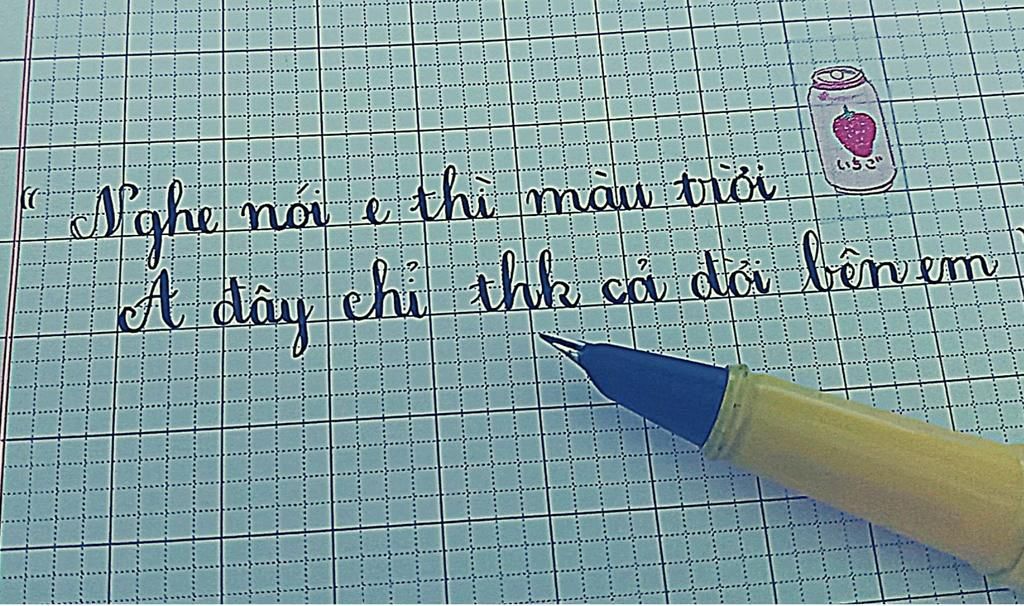 いちご
“ Nghe nói e thì màu trời
A đây chỉ thk cả đời bên em ”